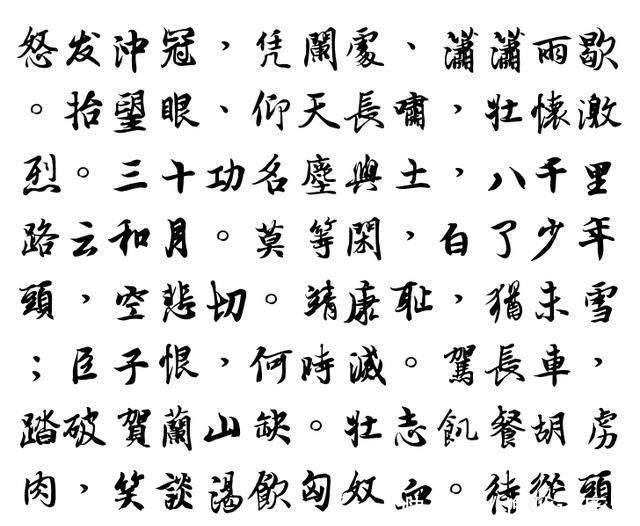 怒发沖冠，凭闌處、瀟瀟雨歇
。抬望眼、仰天長嘯，壯懷激
烈。三十功名塵與土，八千里
路云和月。莫等閑，白了少年
頭，空悲切。靖康耻，猶未雪
；臣子恨，何時滅。駕長車，
踏破賀蘭山缺。壯志飢餐胡虏
肉，笑談渴飲匈奴血。待從頭